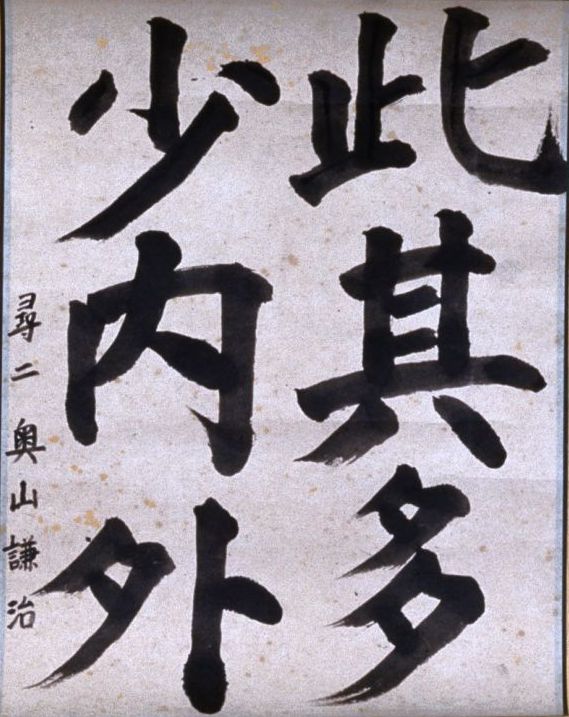 此其多
少内外
尋二 奥山謙治